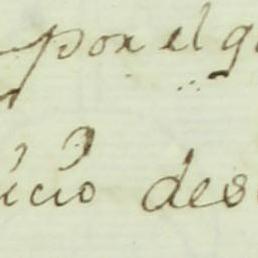 por el g
icio des